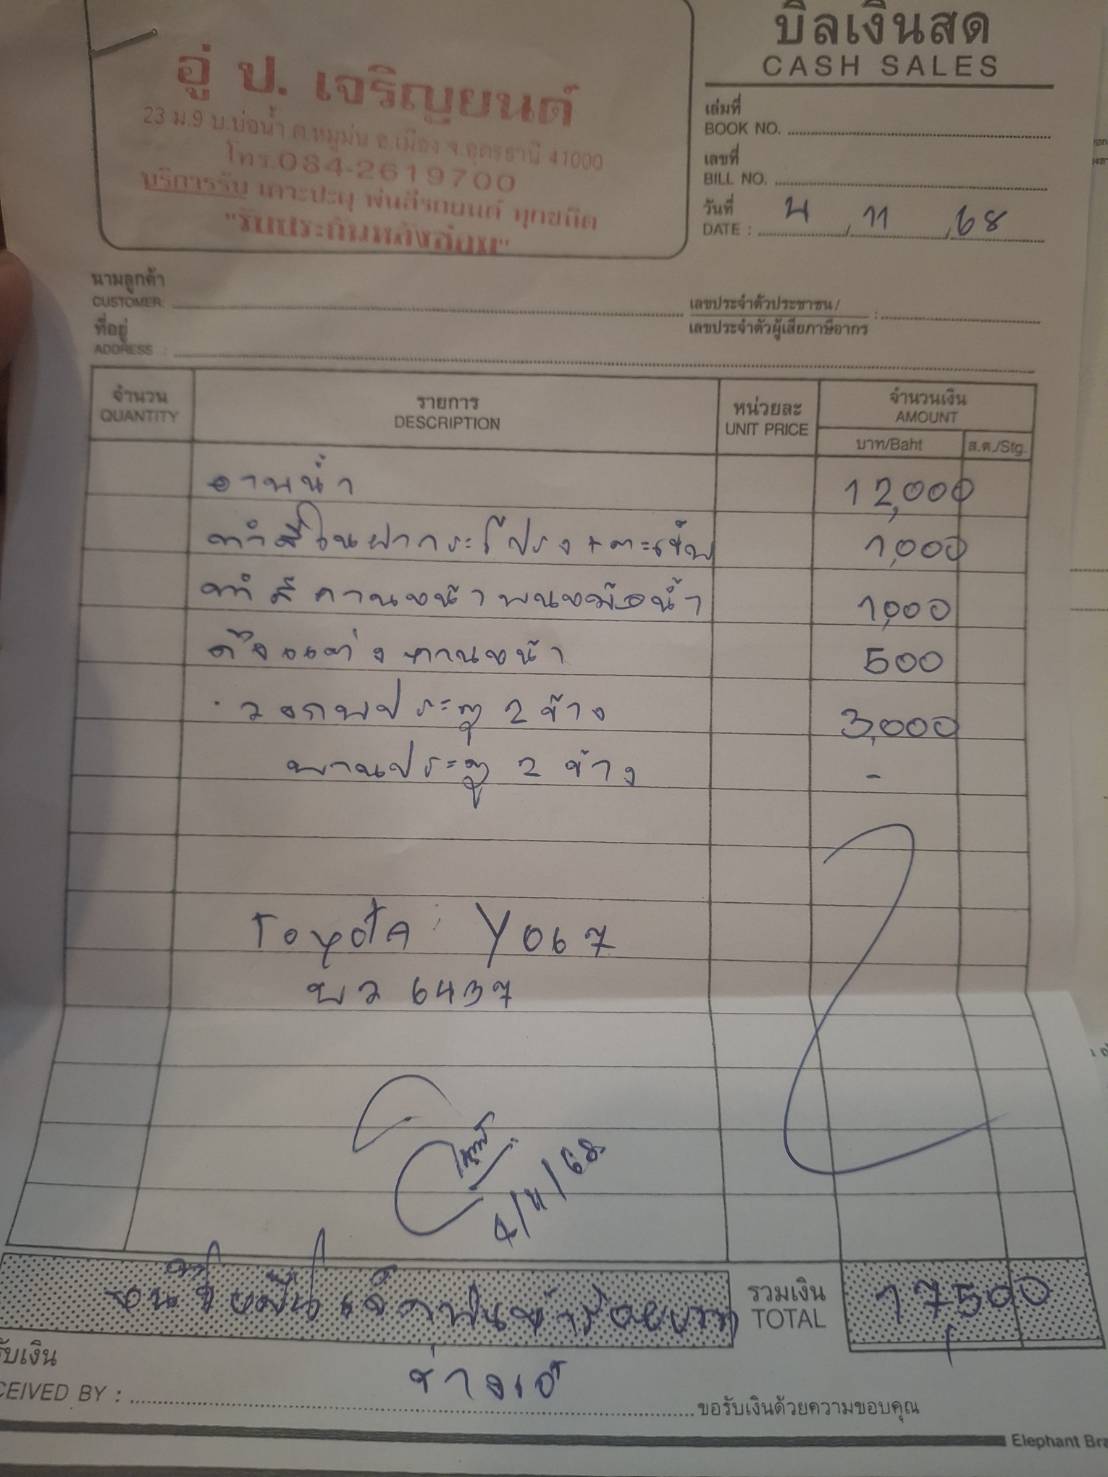 บิลเงินสด
CASH SALES
อู่ ป. เจริญยนต์
23 ม.9 บ.บ่อน้ำ ต.หมูม่น อ.เมือง จ.อุดรธานี 41000
โทร.084-2619700
บริการรับ เคาะปะผุ พ่นสีรถยนต์ ทุกชนิด
"รับประกันหลังซ่อม"
เล่มที่
BOOK NO.
เลขที่
BILL NO.
วันที่ 4 / 11 / 68
DATE :
นามลูกค้า
CUSTOMER
เลขประจำตัวประชาชน/
เลขประจำตัวผู้เสียภาษีอากร
ที่อยู่
ADDRESS :
จำนวน QUANTITY รายการ DESCRIPTION หน่วยละ UNIT PRICE จำนวนเงิน AMOUNT
บาท/Baht ส.ต./Stg.
12,000
ทำสีในฝากระโปรง + ตะเข็บ 1,000
ทำสีคานหน้า 1,000
คานหน้า 500
ประตู 2 ข้าง 3,000
ประตู 2 ข้าง -
Toyota Y067
6437
4/11/68
หนึ่งหมื่นเจ็ดพันห้าร้อยบาท รวมเงิน TOTAL 17,500
รับเงิน
CEIVED BY :
ขอรับเงินด้วยความขอบคุณ
Elephant Bra